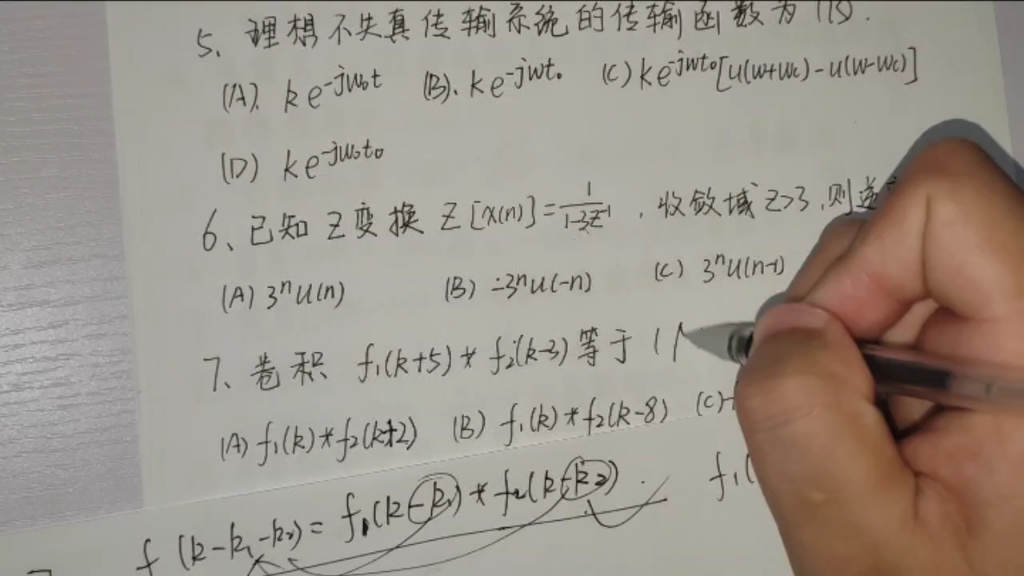 5、理想不失真传输系统的传输函数为 (B).
(A). ke^{-jw₀t} (B). ke^{-jwt₀} (C) ke^{-jwt₀}[u(w+wc)-u(w-wc)]
(D) ke^{-jw₀t₀}
6、已知 Z变换 Z[x(n)]=\frac{1}{1-3z^{-1}}，收敛域Z>3，则逆
(A) 3ⁿu(n) (B) -3ⁿu(-n) (C) 3ⁿu(n-1)
7、卷积 f₁(k+5)*f₂(k-3)等于 (
(A) f₁(k)*f₂(k+2) (B) f₁(k)*f₂(k-8) (C)
f(k-k₁-k₂)=f₁(k-k₁)*f₂(k-k₂). f₁(